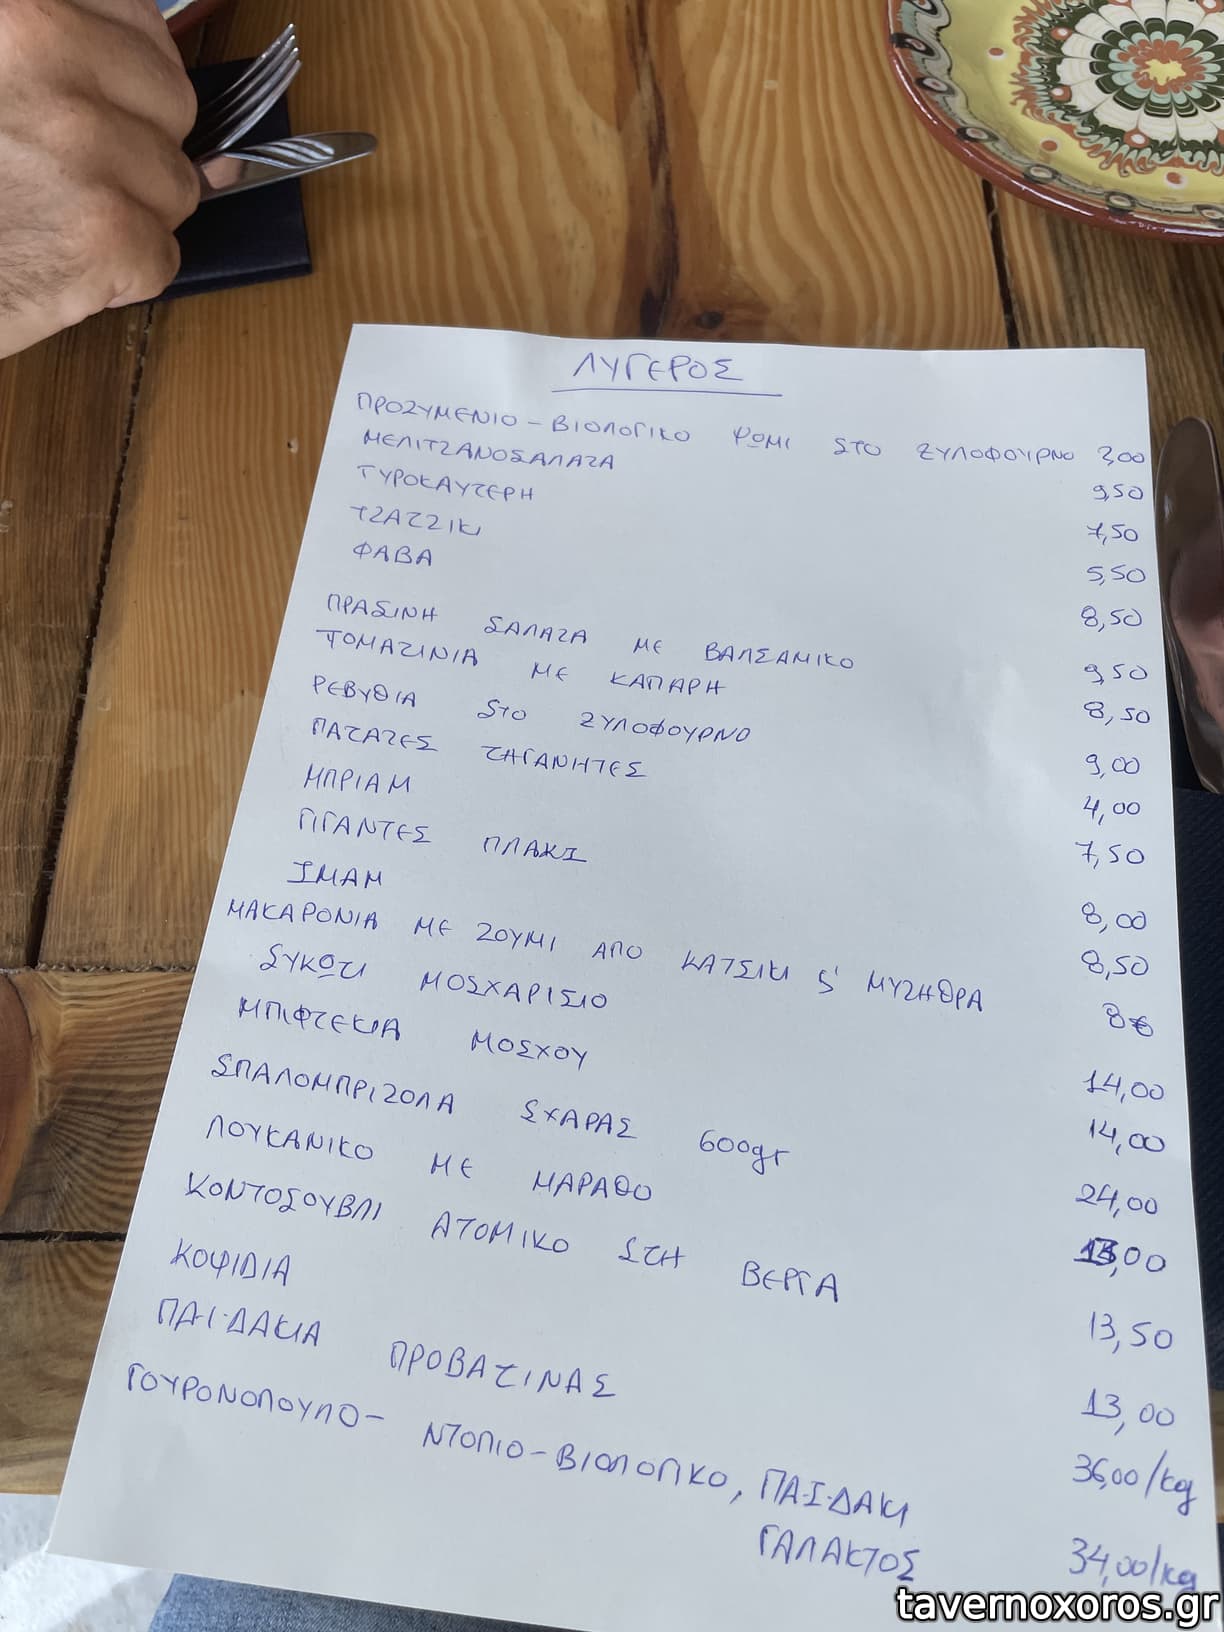 ΛΥΓΕΡΟΣ
ΠΡΟΖΥΜΕΝΙΟ - ΒΙΟΛΟΓΙΚΟ ΨΩΜΙ ΣΤΟ ΞΥΛΟΦΟΥΡΝΟ 3,00
ΜΕΛΙΤΖΑΝΟΣΑΛΑΤΑ 9,50
ΤΥΡΟΚΑΥΤΕΡΗ 7,50
ΤΖΑΤΖΙΚΙ 5,50
ΦΑΒΑ 8,50
ΠΡΑΣΙΝΗ ΣΑΛΑΤΑ ΜΕ ΒΑΛΣΑΜΙΚΟ 9,50
ΤΟΜΑΤΙΝΙΑ ΜΕ ΚΑΠΑΡΗ 8,50
ΡΕΒΥΘΙΑ ΣΤΟ ΞΥΛΟΦΟΥΡΝΟ 9,00
ΠΑΤΑΤΕΣ ΤΗΓΑΝΗΤΕΣ 4,00
ΜΠΡΙΑΜ 7,50
ΓΙΓΑΝΤΕΣ ΠΛΑΚΙ 8,00
ΙΜΑΜ 8,50
ΜΑΚΑΡΟΝΙΑ ΜΕ ΖΟΥΜΙ ΑΠΟ ΚΑΤΣΙΚΙ ς' ΜΥΖΗΘΡΑ 8€
ΣΥΚΩΤΙ ΜΟΣΧΑΡΙΣΙΟ 14,00
ΜΠΙΦΤΕΚΙΑ ΜΟΣΧΟΥ 14,00
ΣΠΑΛΟΜΠΡΙΖΟΛΑ ΣΧΑΡΑΣ 600gr 24,00
ΛΟΥΚΑΝΙΚΟ ΜΕ ΜΑΡΑΘΟ 13,00
ΚΟΝΤΟΣΟΥΒΛΙ ΑΤΟΜΙΚΟ ΣΤΗ ΒΕΡΓΑ 13,50
ΚΟΨΙΔΙΑ 13,00
ΠΑ·Ι·ΔΑΚΙΑ ΠΡΟΒΑΤΙΝΑΣ 36,00/kg
ΓΟΥΡΟΝΟΠΟΥΛΟ - ΝΤΟΠΙΟ - ΒΙΟΛΟΓΙΚΟ, ΠΑ·Ι·ΔΑΚΙ
ΓΑΛΑΚΤΟΣ 34,00/kg
tavernoxoros.gr